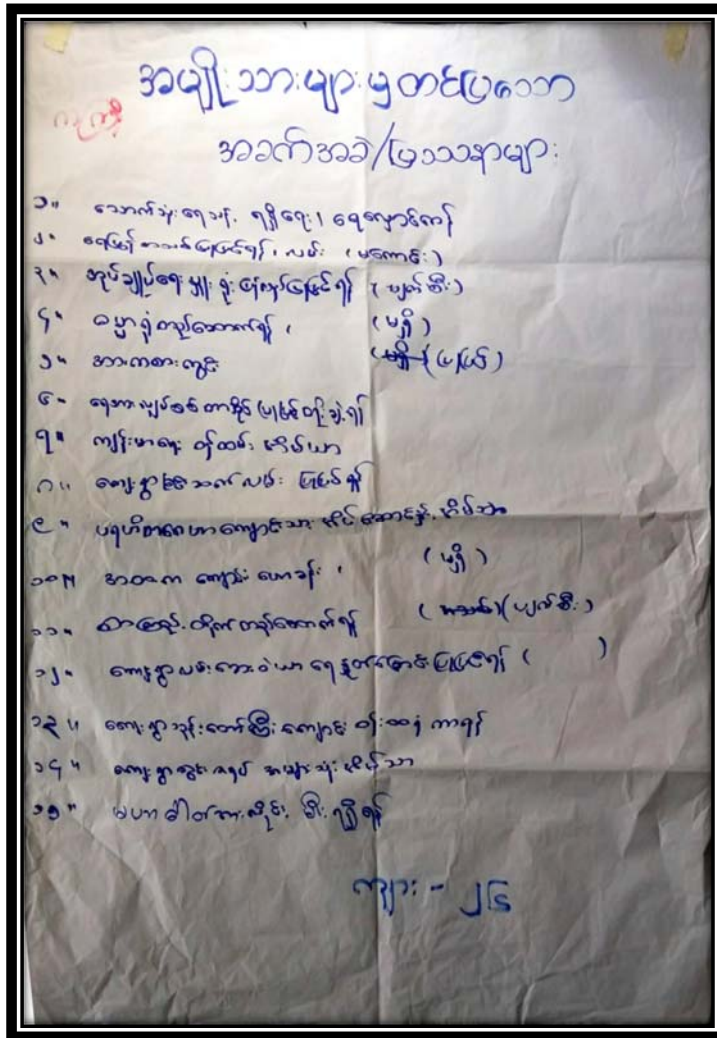 အမျိုးသားများမှတင်ပြသော
အခက်အခဲ/ပြဿနာများ
၁။ သောက်သုံးရေသန့် ရရှိရေး၊ ရေလှောင်ကန်
၂။ ရေမြောင်း ပြုပြင်ရန်၊ လမ်း (မကောင်း)
၃။ အုပ်ချုပ်ရေးမှူးရုံး ပြုပြင်ရန် (ပျက်စီး)
၄။ ဓမ္မာရုံတည်ဆောက်ရန်၊ (မရှိ)
၅။ အားကစားကွင်း (မရှိ) (ပြုပြင်)
၆။ ပြုပြင်တိုးချဲ့ရန်
၇။ ကျန်းမာရေး ဝန်ထမ်း အိမ်ယာ
၈။ ကျေးရွာ လမ်း ပြုပြင်ရန်
၉။ ပရဟိတ ကျောင်းသား အိပ်ဆောင်နှင့် အိမ်သာ
၁၀။ အထက ကျောင်း ဟောခန်း၊ (မရှိ)
၁၁။ စာကြည့်တိုက်တည်ဆောက်ရန် (ပျက်စီး)
၁၂။ ကျေးရွာလမ်းဘေးဝဲယာ ရေနုတ်မြောင်းပြုပြင်ရန် ( )
၁၃။ ကျေးရွာဘုန်းတော်ကြီးကျောင်း ဝန်းထရံ ကာရန်
၁၄။ ကျေးရွာတွင်း အများသုံးအိမ်သာ
၁၅။ မဟာဓါတ်အားလိုင်း မီးရရှိရန်
ကျား - ၂၆